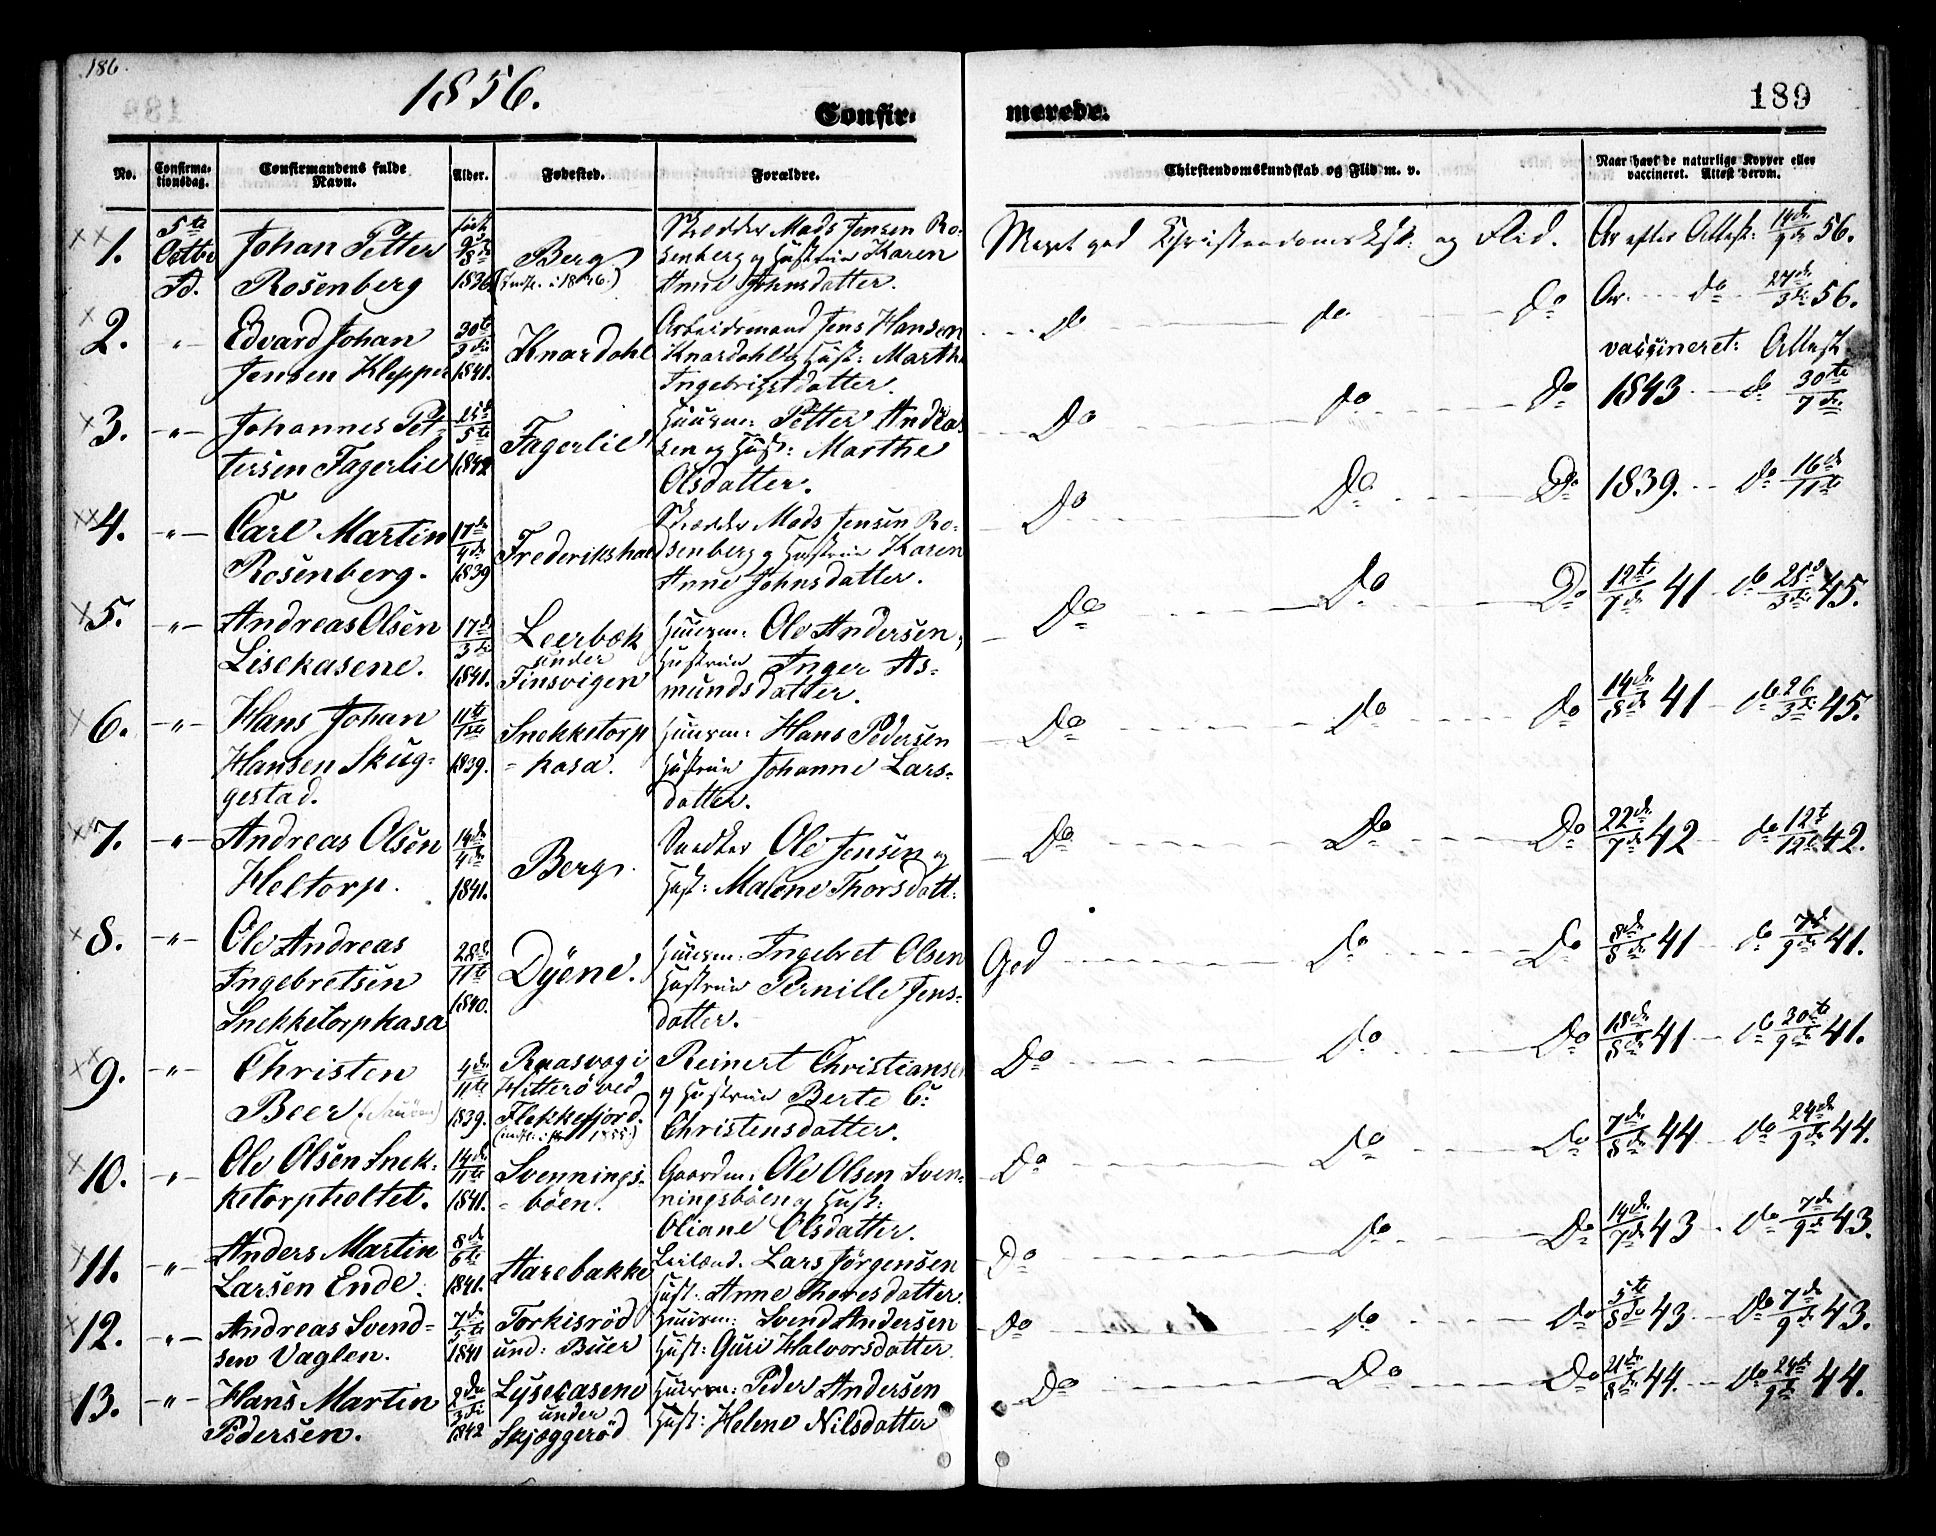 186.
1856.
Confir-
merede.
189
No.
Confirma-
tionsdag.
Confirmandens fulde
Navn.
Alder.
Fødested.
Forældre.
Chirstendomskundskab og Flid m. v.
Naar havt de naturlige Kopper eller
vaccineret. Attest derom.
1. 5te Octbr Johan Petter Rosenberg 1836 Berg
Skrædder Mads Jensen Ro-
senberg og Hustrue Karen
Anne Johnsdatter.
Meget god Christendomsksk: og Flid. Av efter Attest: 56.
2. -"- Edvard Johan
Jensen Klepper 30te/3die 1841. Knardahl
Arbeidsmand Jens Hansen
Knardahl og Hust: Marthe
Ingebrigtsdatter.
do do do Av. do 27de/3die 56.
vaccineret: Attest.
3. -"- Johannes Pet-
tersen Fagerlie 1842 Fagerlie
Huusm: Petter Andreas
sen og Hust: Marthe
Olsdatter.
Do do Do 1843 do 30te/7de
4. -"- Carl Martin
Rosenberg. 17de/4de 1839 Frederikshald
Skrædder Mads Jensen Ro-
senberg og Hustrue Karen
Anne Johnsdatter.
Do Do Do 1839. do 16de/11te
5. -"- Andreas Olsen
Lisekasene. 17de/3die 1841. Leerbæk
under
Finsvigen
Huusm: Ole Andersen,
Hustrue Inger As-
mundsdatter.
Do Do Do 12te/7de 41 do 45.
6. -"- Hans Johan
Hansen Skug-
gestad. 11te/1ste 1839. Snekketorp
-kasa.
Huusm: Hans Pedersen
Hustrue Johanne Lars-
datter.
Do do do 14de/8de 41 do 26/3die 45.
7. -"- Andreas Olsen
Heltorp. 14de/4de 1841. Berg.
Ole Jensen og
Hust: Malene Thorsdatt:
Do Do Do 22de/7de 42 do 12te/12te 42.
8. -"- Ole Andreas
Ingebretsen
Snekketorpkasa 28de/11te 1840. Dyene.
Huusm: Ingebret Olsen
Hustrue Pernille Jens-
datter.
God do Do 8de/8de 41 do 7de/9de 41.
9. -"- Christen
Beer 4de/11te 1839. Raasvog i
Hitterø ved
Flekkefjord.
Reinert Christiansen
og Hustrue Berte C:
Christensdatter.
Do do Do 18de/8de 41 do 30te/9de 41.
10. -"- Ole Olsen Snek-
ketorpholtet. 14de/11te 1841. Svennings-
-böen.
Gaardm: Ole Olsen Sven-
ningsböen og Hust:
Oliane Olsdatter.
Do Do Do 7de/8de 44 do 24de/9de 44.
11. -"- Anders Martin
Larsen Ende. 8de/6te 1841. Aarebakke
Leilænd. Lars Jörgensen
Hust: Anne Thoresdatter.
Do Do Do 14de/7de 43 do 7de/9de 43.
12. -"- Andreas Svend-
sen Vaglen. 7de/5te 1841 Torkisröd
und: Buer
Huusm: Svend Andersen
Hust: Guri Halvorsdatter.
Do do do 5te/8de 43 Do 7de/9de 43.
13. -"- Hans Martin
Pedersen. 2den/3die 1842 Lysekasene
under
Skjæggeröd
Huusm: Peder Andersen
Hust: Helene Nilsdatter
Do Do Do 21de/8de 44. Do 24de/9de 44.